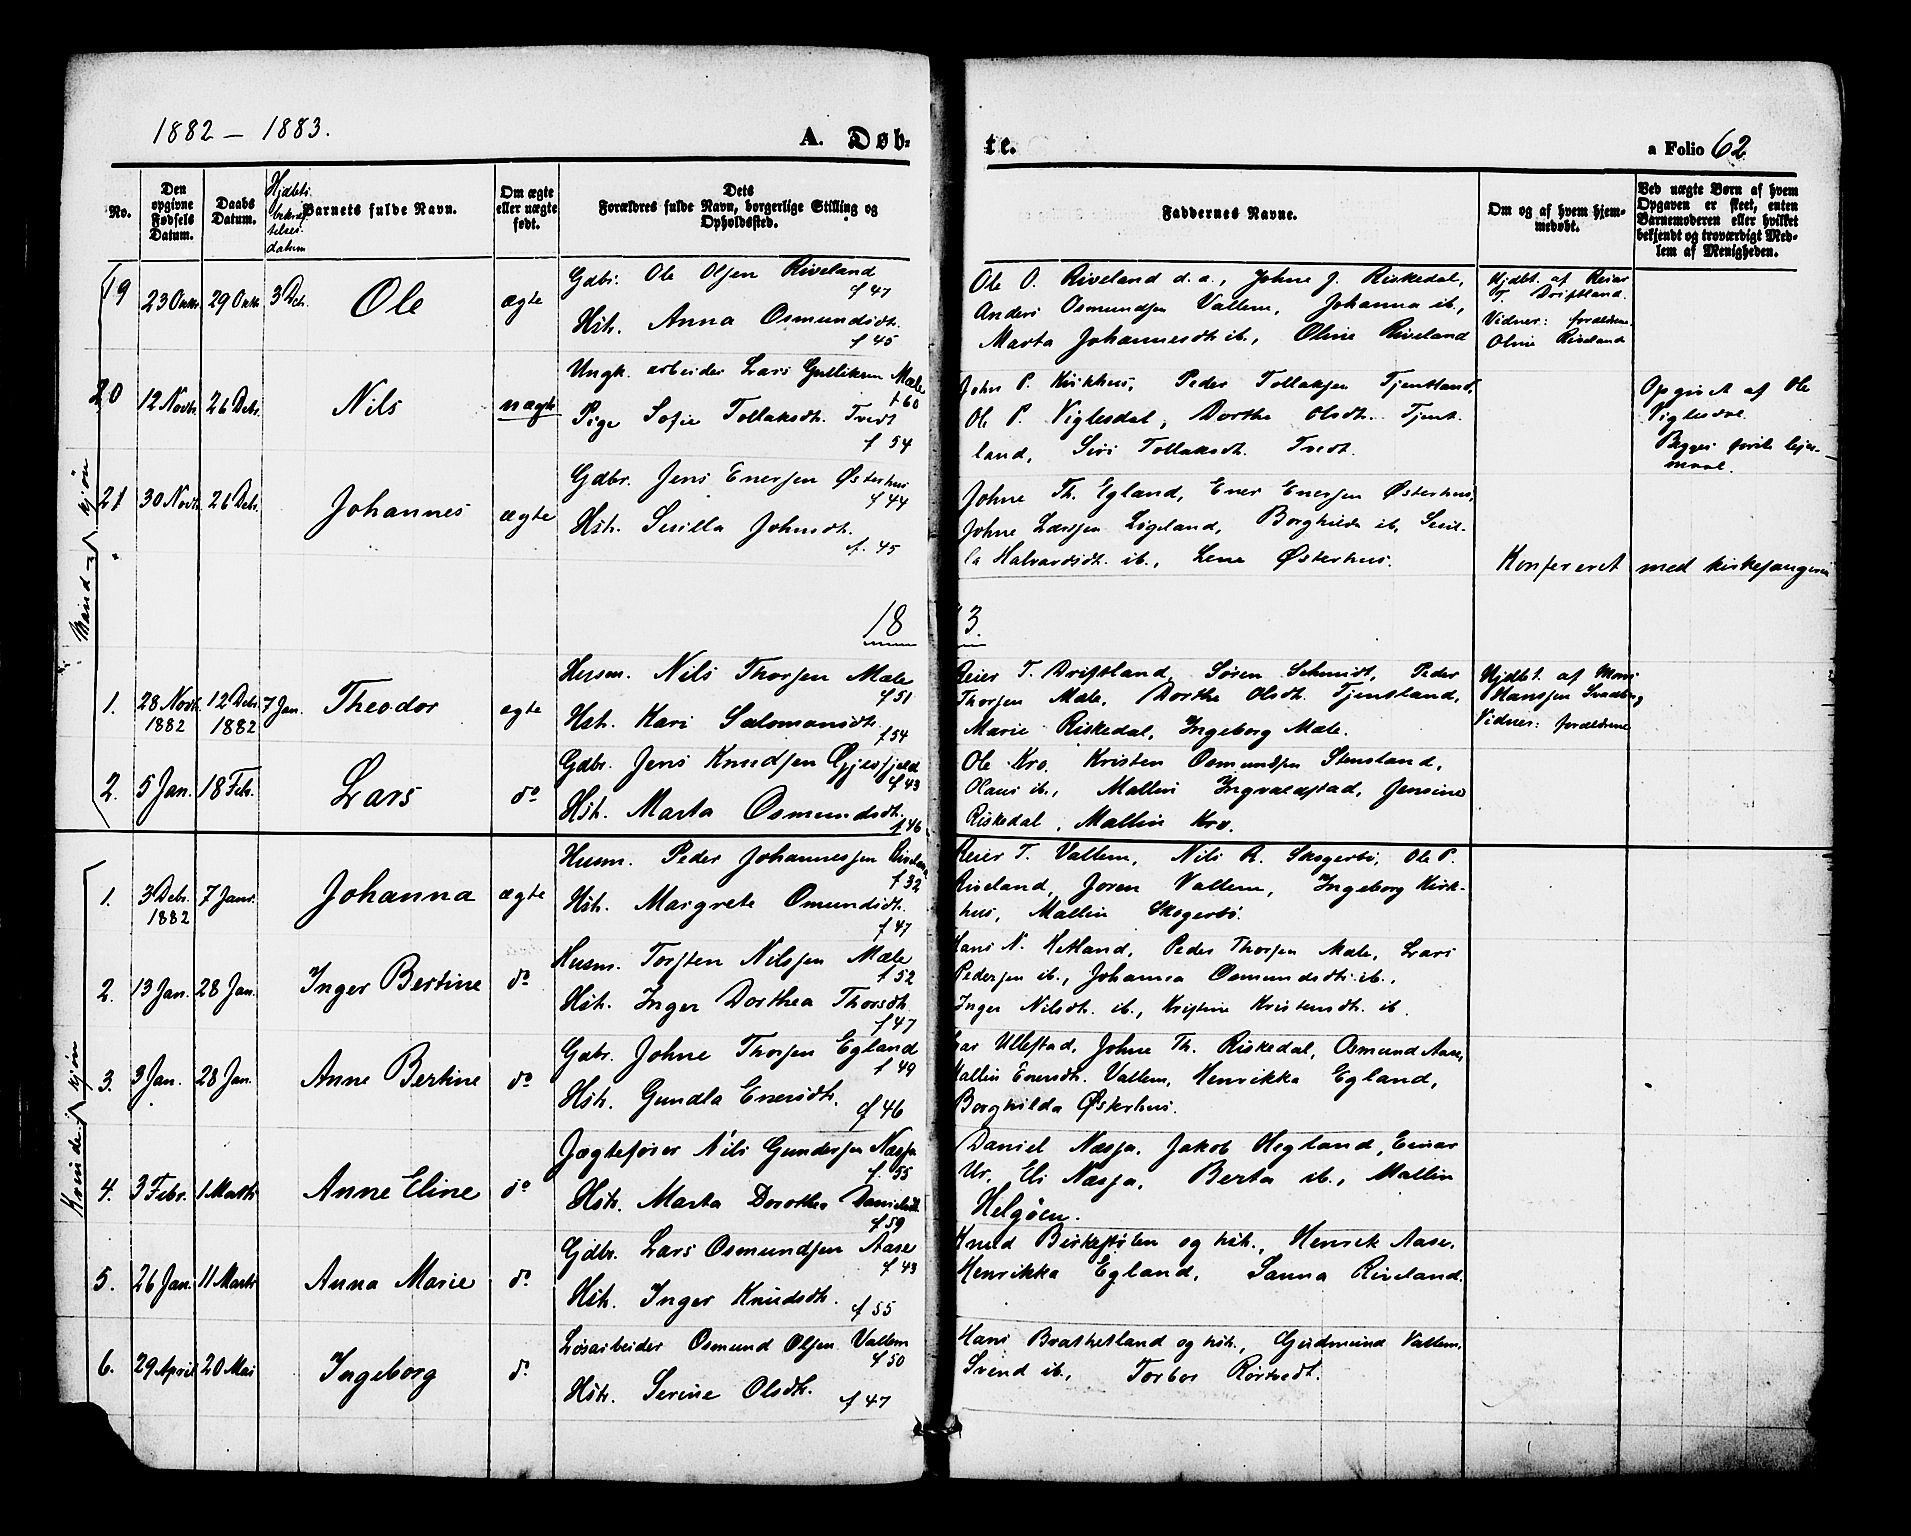 1882 – 1883.
A. Døb-
te.
a Folio 62
No.
Den opgivne Fødsels Datum.
Daabs Datum.
Hjdbts. bekræftelses datum
Barnets fulde Navn.
Om ægte eller uægte født.
Dets Forældres fulde Navn, borgerlige Stilling og Opholdssted.
Faddernes Navne.
Om og af hvem hjemmedøbt.
Ved uægte Børn af hvem Opgaven er skeet, enten Barnemoderen eller hvilket bekjendt og troværdigt Medlem af Menigheden.
Mandkjøn
19 23 Oktr. 29 Oktr. 3 Dcbr. Ole ægte
Gdbr. Ole Olsen Riveland f 47
Hst. Anna Osmundsdt. f 45
Ole O. Riveland d. a., Johne J. Riskedal,
Anders Osmundsen Vallem, Johanna ib.,
Marta Johannesdt. ib., Oline Riveland
Hjdbt. af Reiar
T. Driftland.
Vidner: forældrene
Oline Riveland
20 12 Novbr. 26 Dcbr. Nils uægte
Ungk. arbeider Lars Gulliksen Mæle f 60
Pige Sofie Tollaksdt. Tvedt f 54
John P. Kirkhus, Peder Tollaksen Tjentland,
Ole P. Viglesdal, Dorthe Olsdt. Tjent-
land, Siri Tollaksdt. Tvedt.
Opgivet af Ole
Viglesdal
Begges første leier-
maal
21 30 Novbr. 26 Dcbr. Johannes ægte
Gdbr. Jens Enersen Østerhus f 44
Hst. Sisilla Johnsdt. f. 45
Johne Th. Egland, Ener Enersen Østerhus,
Johne Larssen Ligeland, Borghilda ib. Sisil-
la Halvardsdt. ib., Lene Østerhus.
Konfereret med kirkesangeren
1883.
1. 28 Novbr. 1882 12 Dcbr. 1882 7 Jan. Theodor ægte
Husm. Nils Thorsen Mæle f 51
Hst. Kari Salomonsdt. f 54
Reier T. Driftland, Søren Schmidt, Peder
Thorsen Mæle, Dorthe Olsdt. Tjentland,
Marie Riskedal, Ingeborg Mæle.
Hjdbt. af
Hansen
Vidner: forældrene
2. 5 Jan. 18 Febr. Lars do
Gdbr. Jens Knudsen Gjesfjeld f 43
Hst. Marta Osmundsdt. f 46
Ole Kro. Kristen Osmundsen Stensland,
Olaus ib., Mallin Ingvaldstad, Jensine
Riskedal, Mallin Kro.
Kvindekjøn
1. 3 Dcbr. 1882 7 Janr. Johanna ægte
Husm. Peder Johannessen Riveland f 32
Hst. Margrete Omundsdt. f 47
Reier T. Vallem, Nils R. Skogerbø, Ole P.
Riveland, Joren Vallem, Ingeborg Kirk-
hus, Mallin Skogerbø.
2. 13 Jan. 28 Jan. Inger Bertine do
Husm. Torsten Nilssen Mæle f 52
Hst. Inger Dorthea Thorsdt. f 47
Hans N. Hetland, Peder Thorsen Mæle, Lars
Pedersen ib., Johanna Osmundsdt. ib.,
Inger Nilsdt. ib., Kristine Kristensdt. ib.
3. 3 Jan. 28 Jan. Anne Bertine do
Gdbr. Johne Thorsen Egland f 49
Hst. Gundla Enersdt. f 46
Ullestad, Johne Th. Riskedal, Osmund Aase,
Mallin Enersdt. Vallem, Henrikka Egland,
Borghilda Østerhus.
4. 3 Febr. 1 Marts Anne Eline do
Jægtefører Nils Gundersen Næsja f. 55
Hst. Marta Dorothea Danielsdt. f 59
Daniel Næsja, Jakob Hegland, Einar
Ur, Eli Næsja, Berta ib., Mallin
Helgøen.
5. 26 Jan. 11 Marts Anna Marie do
Gdbr. Lars Osmundsen Aase f 43
Hst. Inger Knudsdt. f 55
Knud Birkestølen og hst., Henrik Aase,
Henrikka Egland, Sanna Riveland.
6. 29 April 20 Mai Ingeborg do
Løsarbeider Osmund Olsen Vallem f 50
Hst. Serine Olsdt. f 47
Hans Brathetland og hst., Gudmund Vallem,
Svend ib., Torbor Rørtvedt.